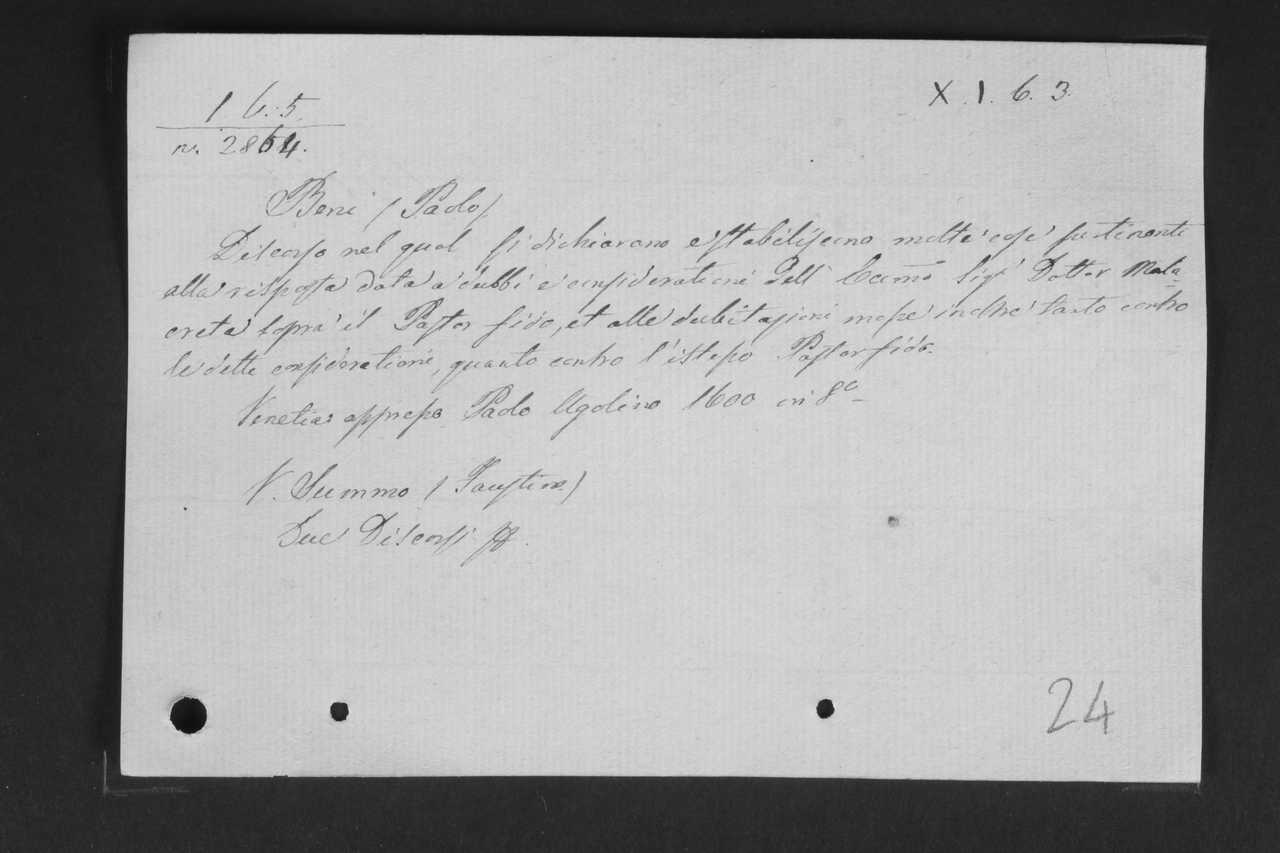 1 6:5.
X.1.6.3.
n. 2864.
Beni (Paolo)
Discorso nel qual si dichiarano e stabiliscono molte cose pertinenti
alla risposta data a' dubbi e considerationi dell' Eccmo Sigr Dottor Mala-
creta sopra il Pastor fido, et alle dubitazioni mosse inoltre tanto contro
le dette considerationi, quanto contro l'istesso Pastor fido.
Venetia appresso Paolo Ugolino 1600 in 8o
V. Summo (Faustino)
Due Discorsi
24